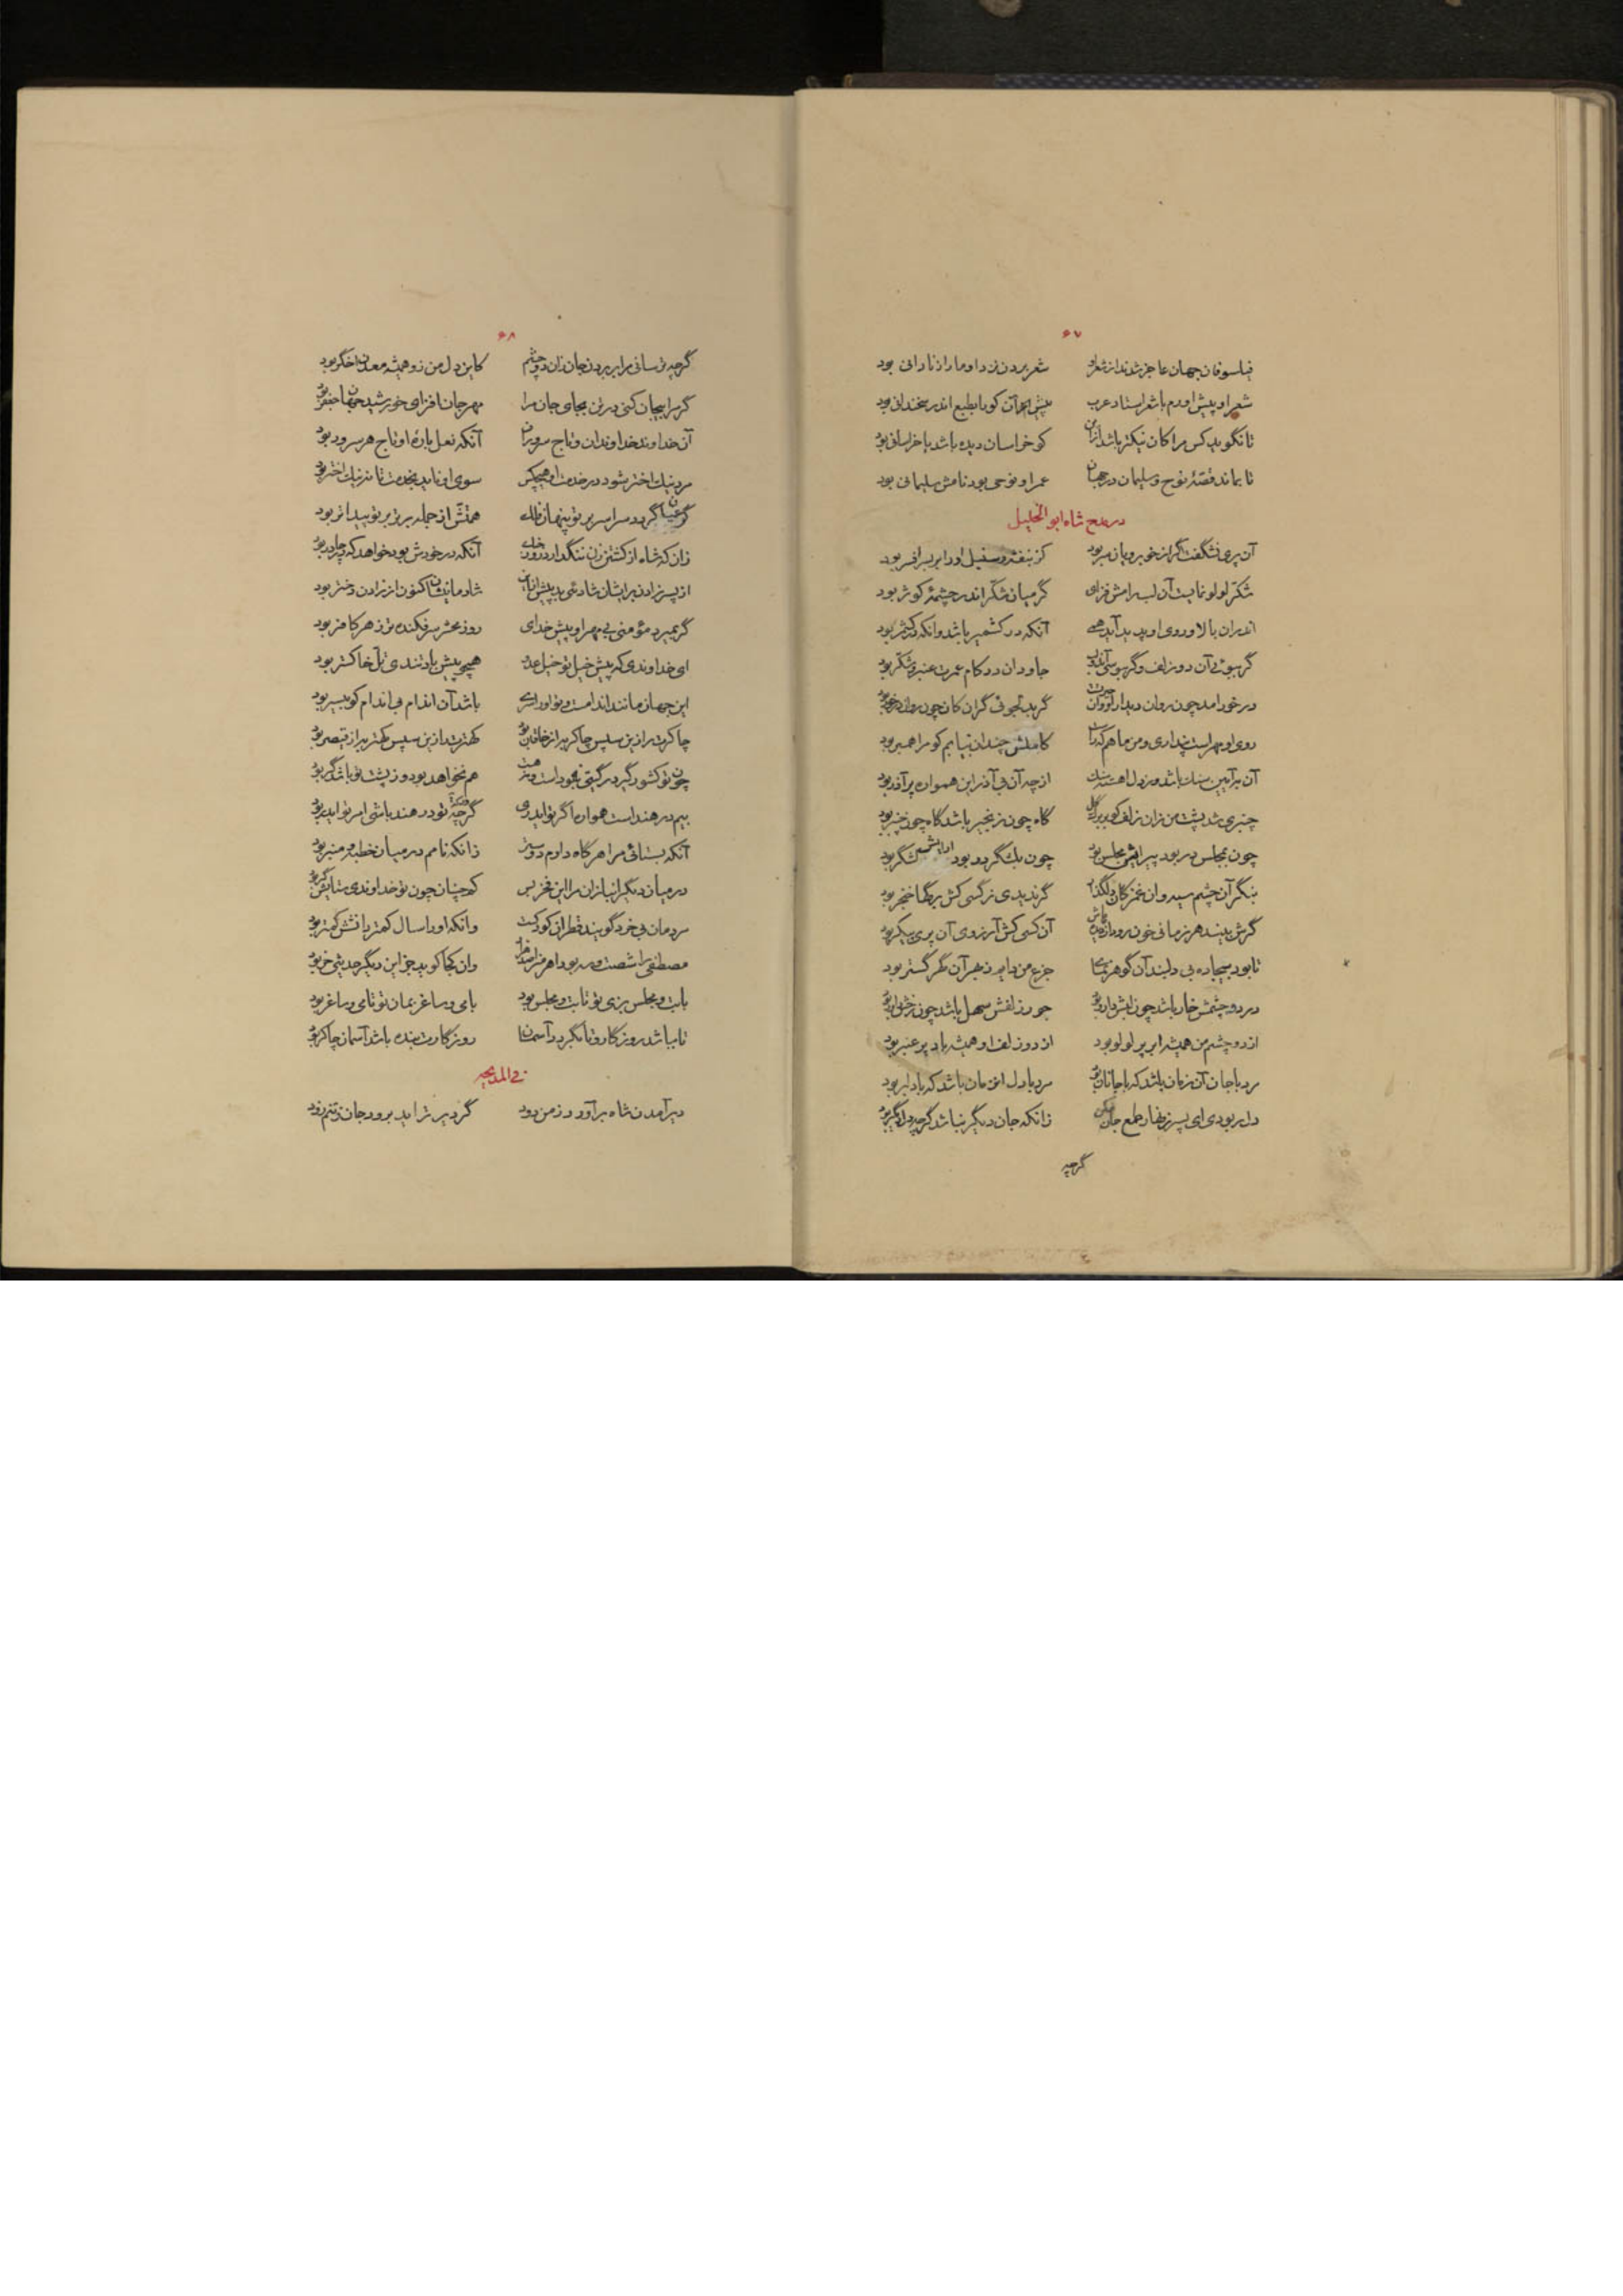 ۶۷
فیلسوفان جهان عاجز شدند از شعر او شعر بردن نزد او ما را ز نادانی بود
شعر او پیش آورم با شعر استاد عرب پیش آن کو را بطبع اندر سخندانی بود
تا نگوید کس مرا کان نیکتر باشد ازین کو خراسان دیده باشد یا خراسانی بود
تا بماند قصهٔ نوح و سلیمان در جهان عمر او نوحی بود نامش سلیمانی بود
در مدح شاه ابو الخلیل
آن پری نشگفت اگر از خوبرویان سر بود کز بنفشه وسنبل او را بر سر افسر بود
شکر لولو نمایست آن لب رامش فزای گر میان شکر اندر چشمهٔ کوثر بود
اندران بالا و روی او پدید آید همی آنکه در کشمیر باشد وانکه در کشر بود
گر ببوئی آن دو زلف و گر ببوسی آن دو لب جاودان در کام عمرت عنبر و شکر بود
در خور آمد چون روان دیدار او
روی او مهر است پنداری و من ماهم کزاست کاملش چندان نیابم کو مرا همبر بود
آن بر آیین سنک باشد در دل از چه آن بی آذر این همواره پر آذر بود
چنبری شد پشت من زان زلف کو بر برگ گل گاه چون زنجیر باشد گاه چون چنبر بود
چون بمجلس در بود پیرایهٔ مجلس بود چون بلشگر در بود آرایش لشگر بود
بنگر آن چشم سیه وان غمزکان دلگداز گر ندیدی نرگسی کش برگها خنجر بود
گرش بیند هر زمانی خون رود از دیده‌اش آن کسی کش آرزوی آن پری پیکر بود
تا بود بیجاده بی دلبند آن گوهرنمای جزع من دایم ز هجر آن گهر گستر بود
درد و چشمش خار باشد چون لبش دارو بود جور زلفش سهل باشد چون رخش داور بود
از دو چشم من همیشه ابر پر لولو بود از دو زلف او همیشه باد پر عنبر بود
مرد با جان آن زمان باشد که با جانان بود مرد با دل آن زمان باشد که با دلبر بود
دل ربودی ای پسر زنهار طمع جان مکن زانکه جان دیگر نباشد گرچه دل دیگر بود
گرچه
۶۸
گرچه ترسانی مرا بر بردن جان زان دو چشم کاین دل من زو همیشه معدن اخگر بود
گر مرا بیجان کنی در تن بجای جان مرا مهر جان افزای خورشید جهان جعفر بود
آن خداوند خداوندان و تاج سروران آنکه نعل بارهٔ او تاج هر سرور بود
مرد نیک اختر شود در خدمت او هیچکس سوی او ناید بخدمت تا نه نیک اختر بود
گر عیبها گردد سراسر بر تو پنهان فلک همتش از جمله بر تر بر تو پیدا تر بود
زان که شاه از کشتن زن ننگ دارد روز آنکه در خورش بود خواهد که در چادر بود
از پسر زادن بر ایشان شادئی بد پیش ازین شادمانیشان کنون از زادن دختر بود
گر بمیرد مؤمنی بی مهر او پیش خدای روز محشر سرفکنده تر ز هر کافر بود
ای خداوندی که پیش خیل تو خیل عدو هم چو پیش باد تندی تل خاکستر بود
این جهان مانند اندامست و تو او را سری باشد آن اندام بی اندام کو بیسر بود
چاکرت را زین سپس چاکر به از خاقان بود کهترت را زین سپس کهتر به از قیصر بود
چون تو کشور گیر در گیتی نبود است و نه هست هم نخواهد بود ور ز پشت تو باشد گر بود
بیم در هند است همواره اگر تو ایدری گرچه تو در هند باشی امر تو ایدر بود
آنکه بستائی مرا هر گاه دارم دوستر زانکه نامم در میان خطبه و منبر بود
در میان دیگر انبازان مرا این فخر بس که چنان چون تو خداوندی ستایش گر بود
مردمان بی خرد گویند قطران کودکست وانکه او را سال کمتر دانش کمتر بود
مصطفی را شصت و سه بود اهرمن را صد هزار وان کجا گوید جز این دیگر حدیثی خر بود
بابت و مجلس بزی تو تا بت و مجلس بود با می و ساغر بمان تو تا می و ساغر بود
تا بباشد روزگار و تا بگردد آسمان روزگارت بنده باشد آسمان چاکر بود
فی المدیحه
دیر آمدن شاه برآورد ز من دود گر دیر تر آید برود جان ز تنم زود